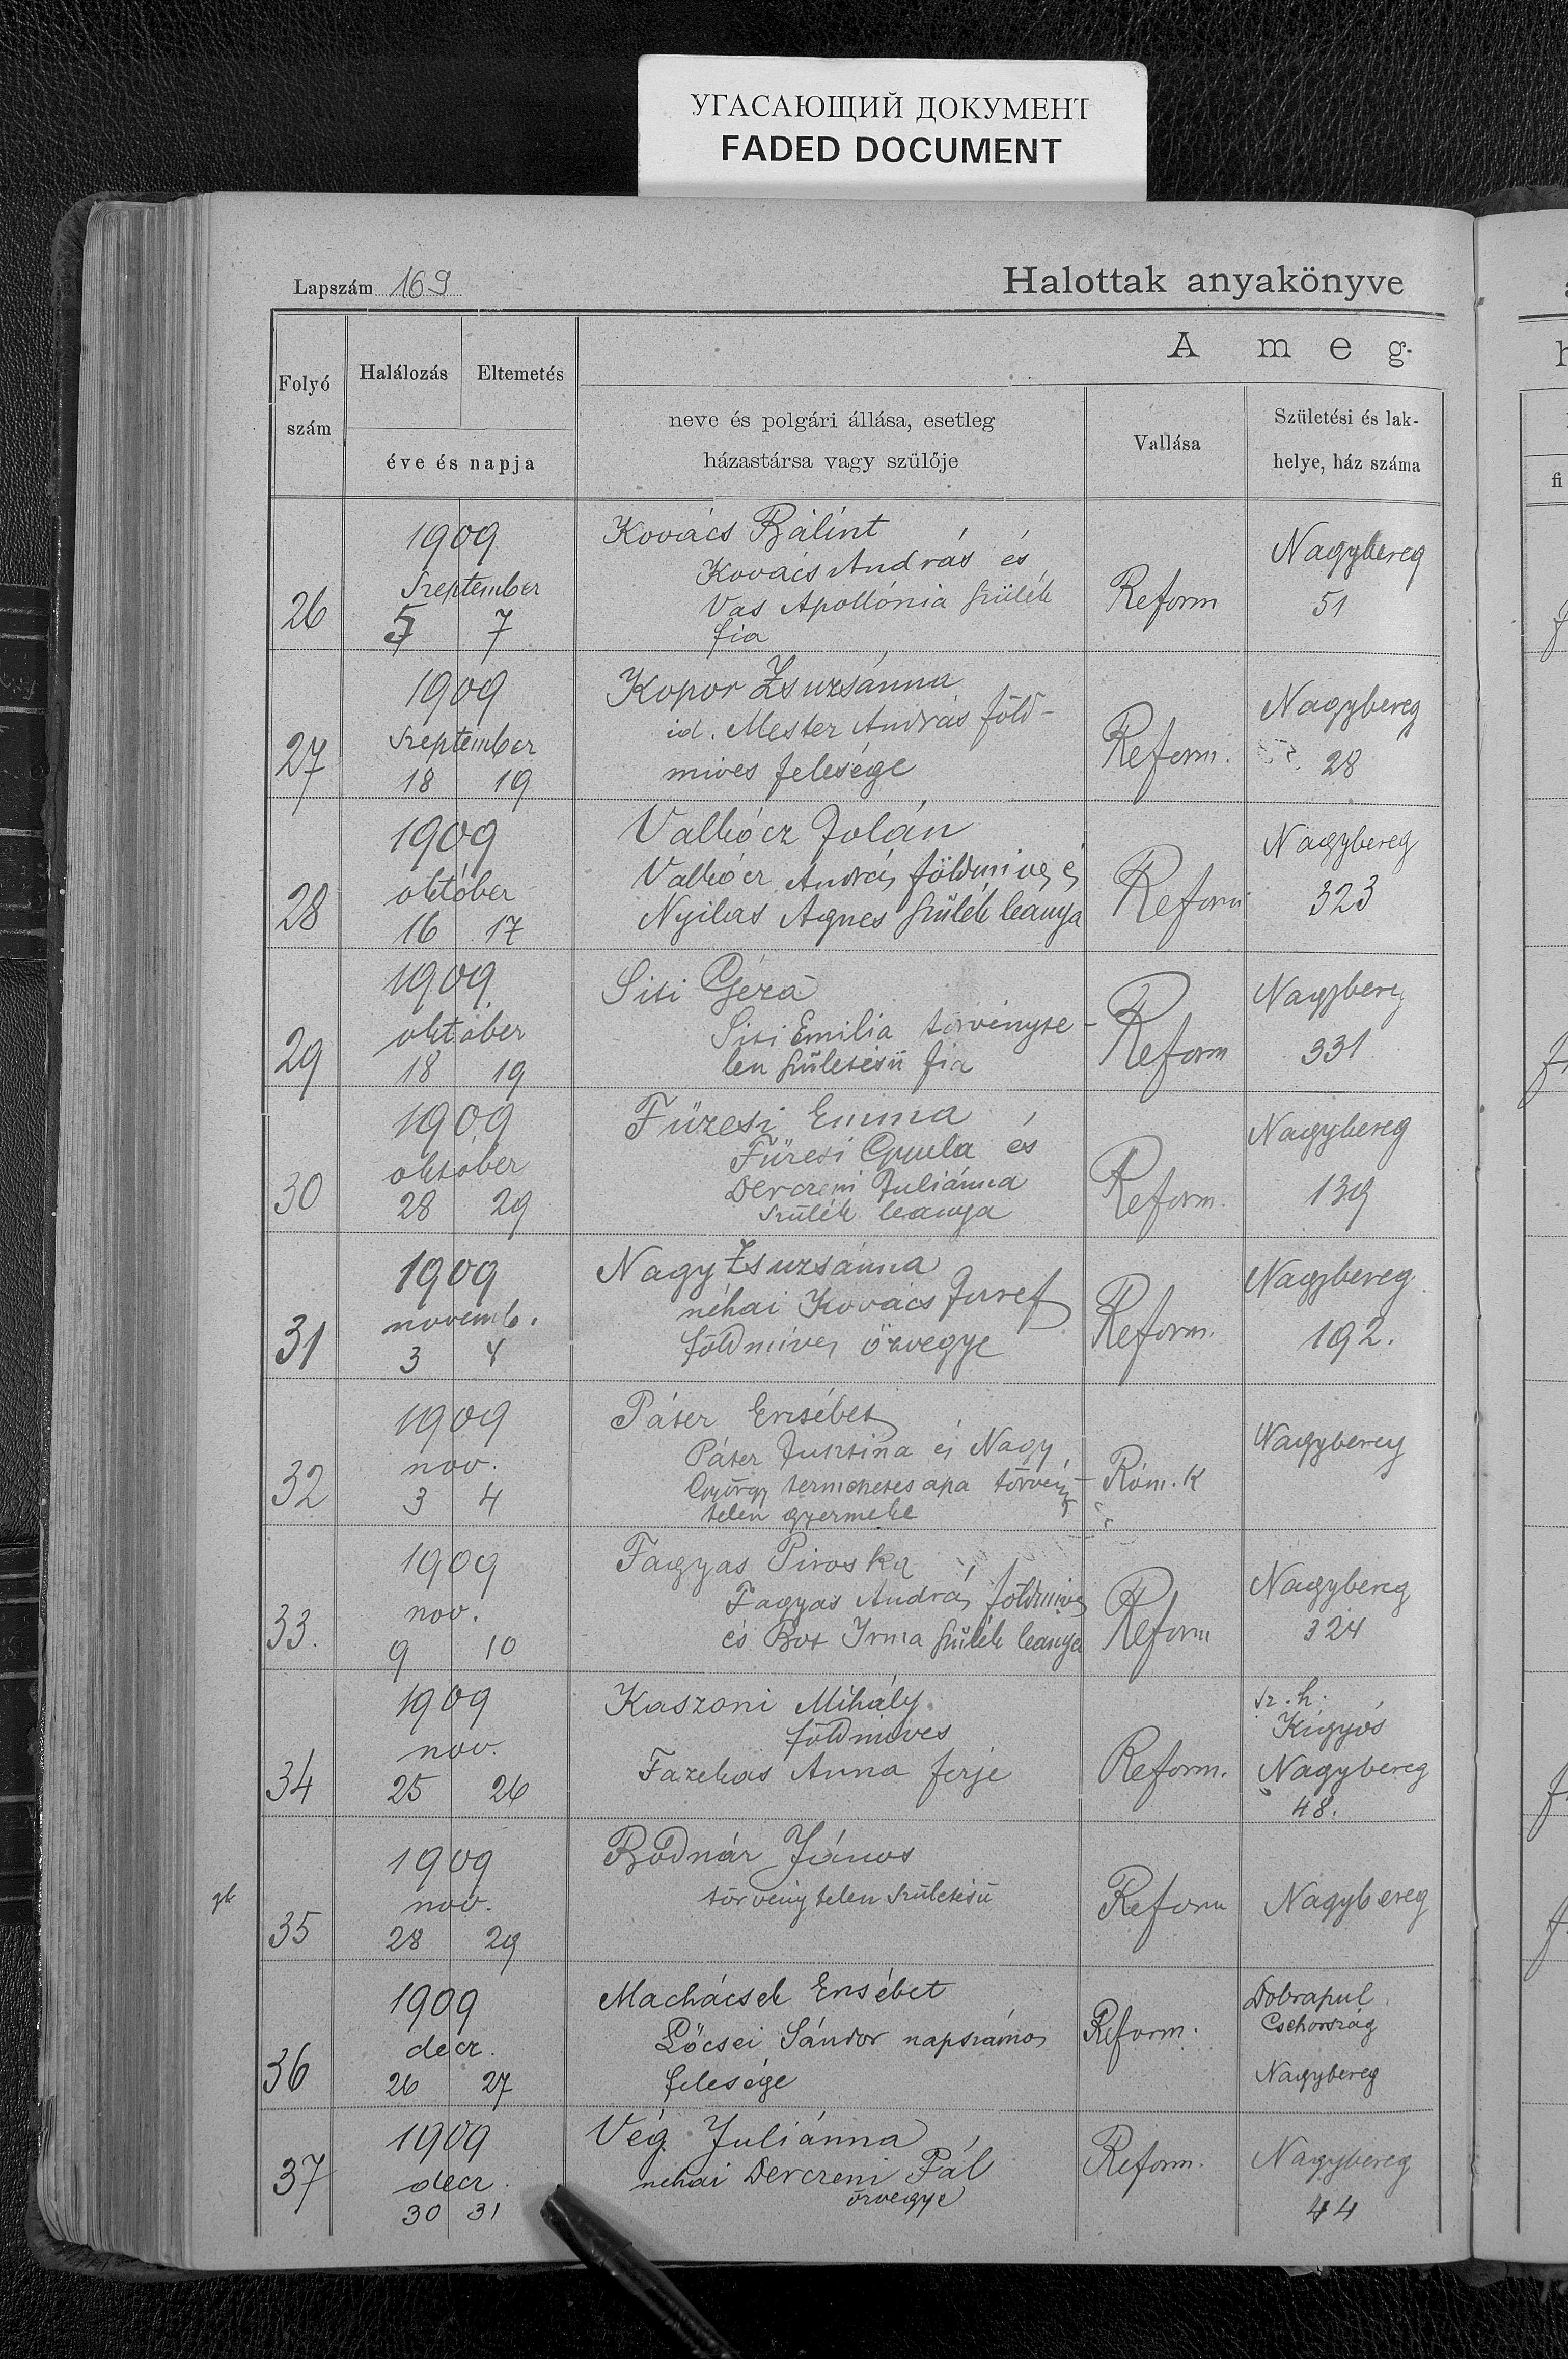 УГАСАЮЩИЙ ДОКУМЕНТ
FADED DOCUMENT
Lapszám 169
Halottak anyakönyve
Folyó szám
Halálozás
Eltemetés
éve és napja
A meg-
neve és polgári állása, esetleg
házastársa vagy szülője
Vallása
Születési és lak-
helye, ház száma
26
1909
Szeptember
5 7
Kovács Bálint
Kovács András és
Vas Apollónia szülék
fia
Reform
Nagybereg
51
27
1909
Szeptember
18 19
Kopor Zsuzsánna
id. Mester András föld-
mives felesége
Reform.
Nagybereg
28
28
1909
október
16 17
Valkócz Jolán
Valkócz András földmives és
Nyilas Agnes szülék leanya
Reform
Nagybereg
323
29
1909
október
18 19
Sisi Géza
Sisi Emilia törvényte-
len születésü fia
Reform
Nagybereg
331
30
1909
október
28 29
Füzesi Emma
Füzesi Gyula és
Derczeni Juliánna
szülék leanya
Reform.
Nagybereg
139
31
1909
novemb.
3 4
Nagy Zsuzsánna
néhai Kovács József
földmíves özvegye
Reform.
Nagybereg
192.
32
1909
nov.
3 4
Páter Erzsébet
Páter Jusztina és Nagy
György termeszetes apa törvény-
telen gyermeke
Róm. K
Nagybereg
33.
1909
nov.
9 10
Fagyas Piroska
Fagyas András földmives
és Bot Irma szülék leanya
Reform
Nagybereg
324
34
1909
nov.
25 26
Kaszoni Mihály
földmives
Fazekas Anna ferje
Reform.
sz. h.
Kigyós
Nagybereg
48.
35
1909
nov.
28 29
Bodnár János
törvénytelen születésü
Reform
Nagybereg
36
1909
decz.
26 27
Machácsek Erzsébet
Lőcsei Sándor napszámos
felesége
Reform.
Dobrapul
Csehország
Nagybereg
37
1909
decz.
30 31
Vég Juliánna
néhai Derczeni Pál
özvegye
Reform.
Nagybereg
44